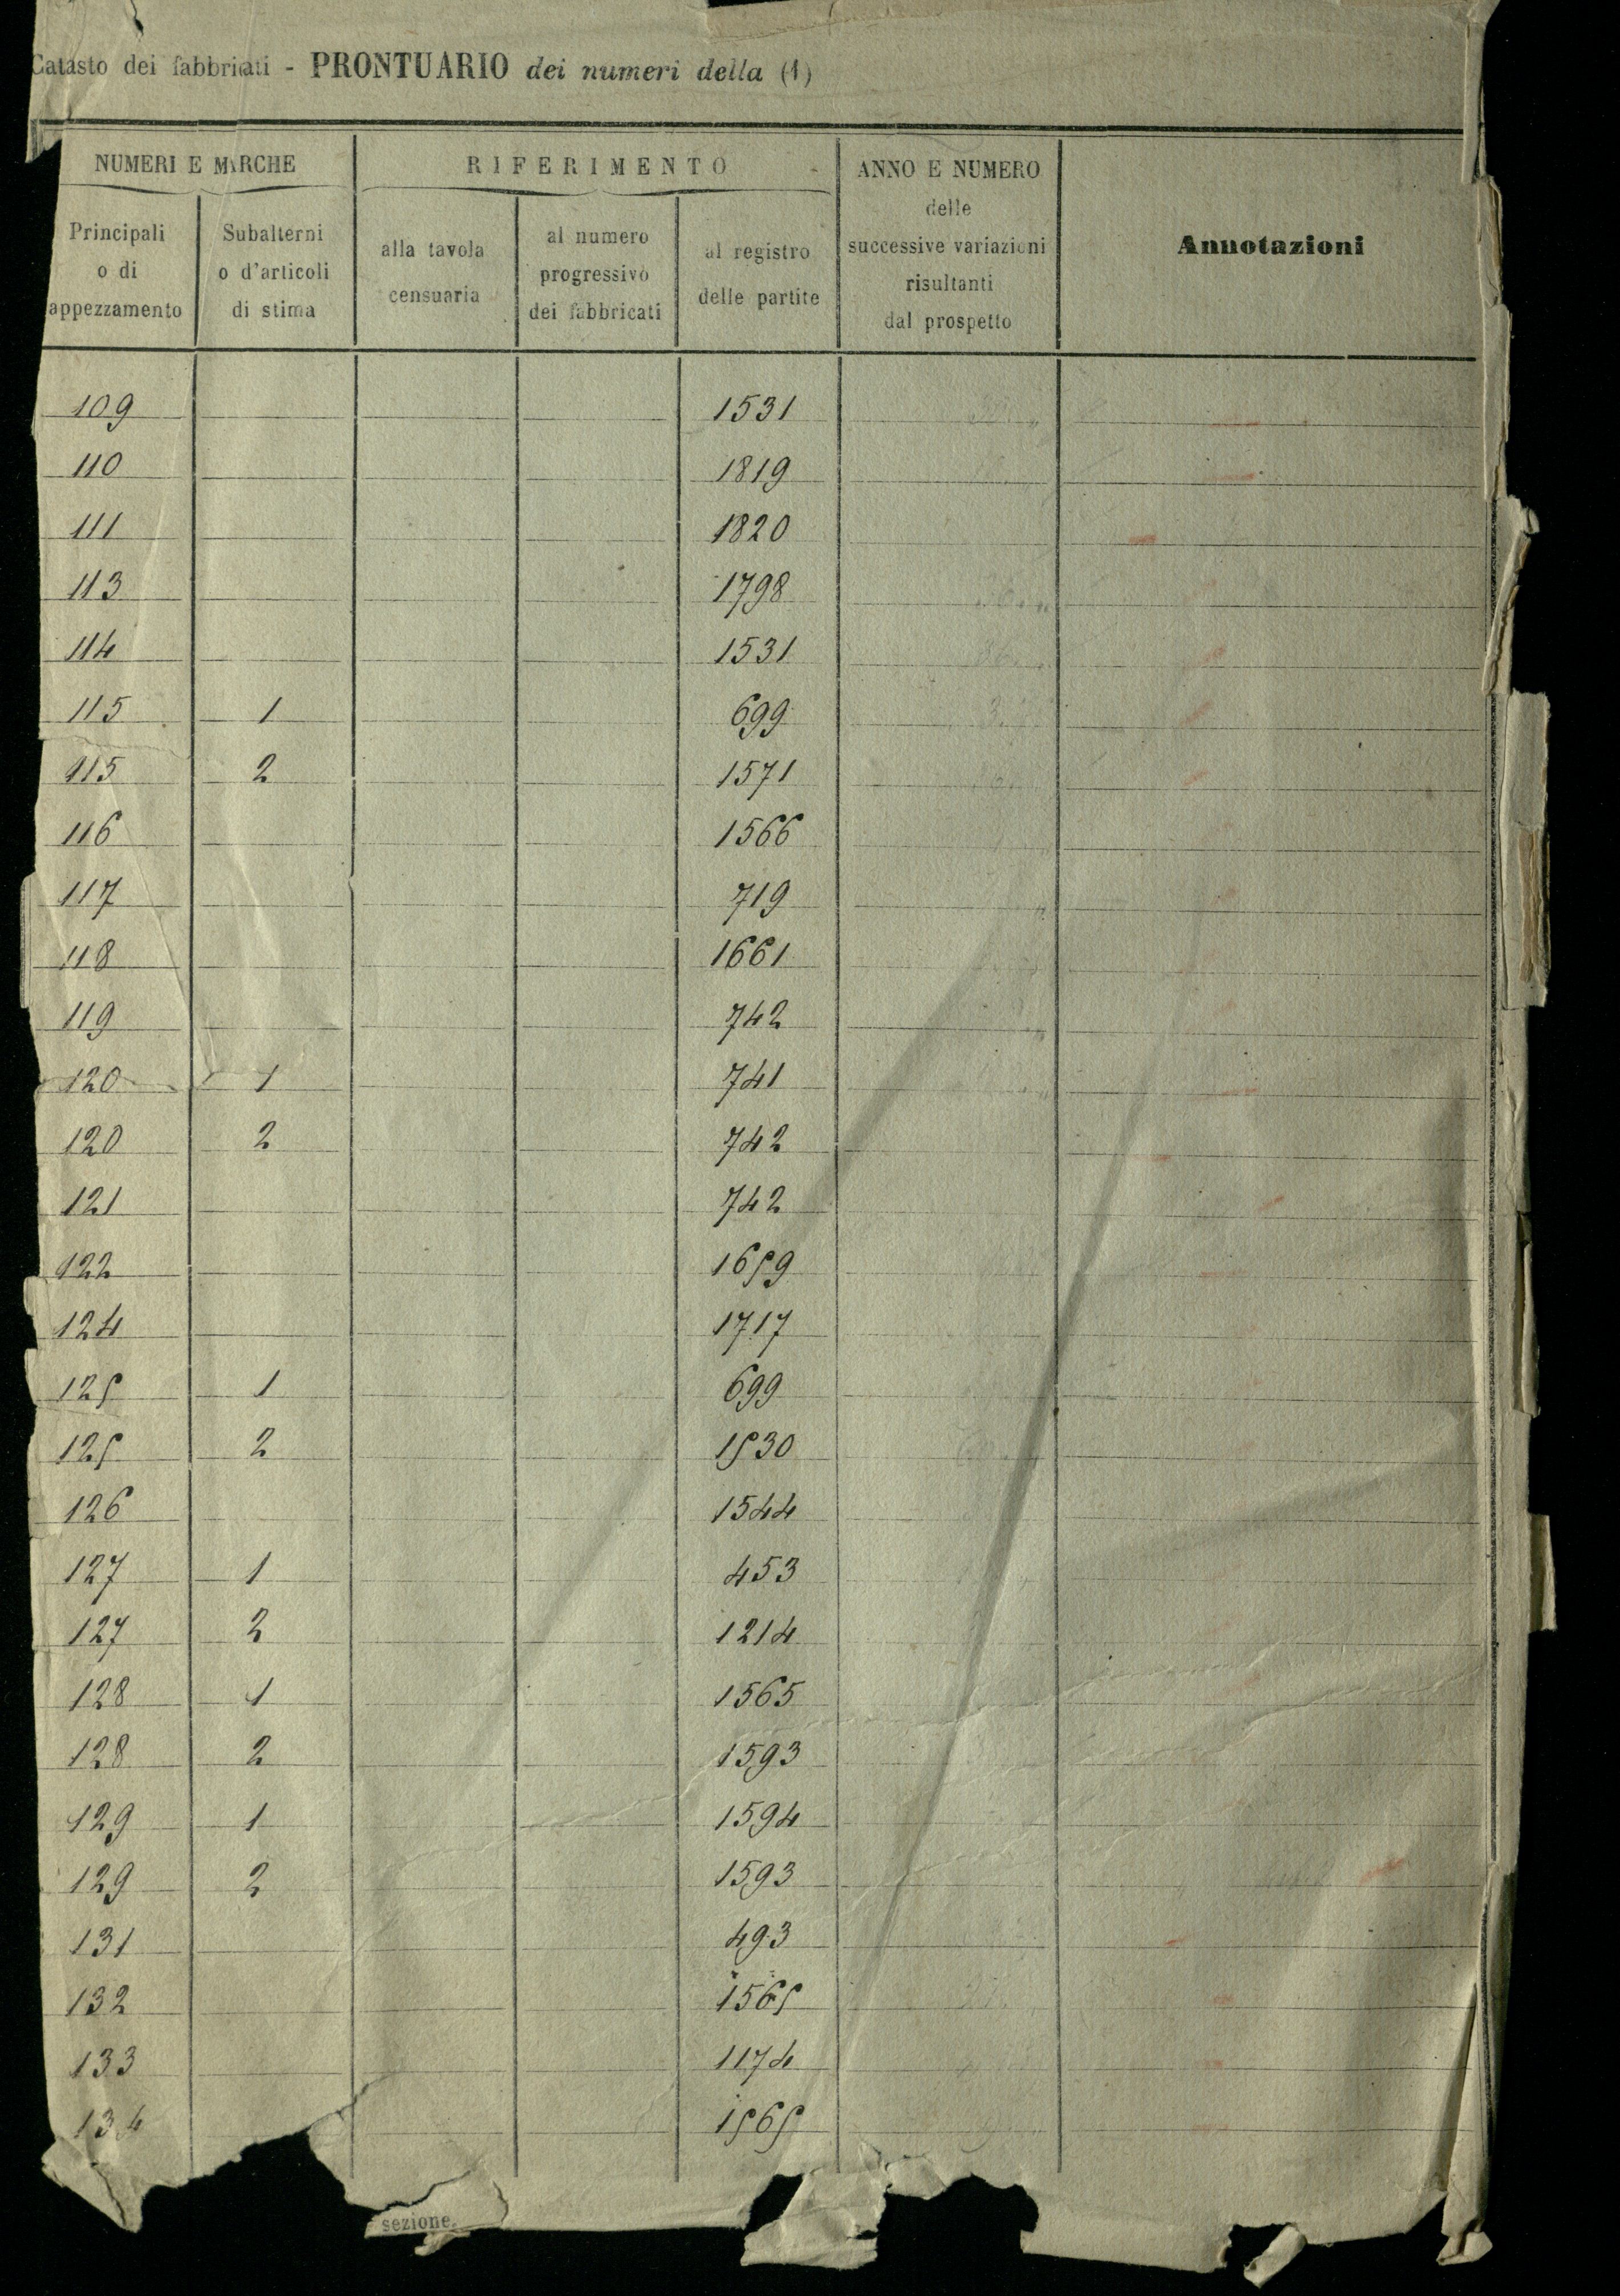 Catasto dei fabbricati - PRONTUARIO dei numeri della (1)
NUMERI E MARCHE
RIFERIMENTO
ANNO E NUMERO
delle
successive variazioni
risultanti
dal prospetto
Annotazioni
Principali
o di
appezzamento
Subalterni
o d'articoli
di stima
alla tavola
censuaria
al numero
progressivo
dei fabbricati
al registro
delle partite
109 1531
110 1819
111 1820
113 1798
114 1531
115 1 699
115 2 1571
116 1566
117 719
118 1661
119 742
120 1 741
120 2 742
121 742
122 1659
124 1717
125 1 699
125 2 1530
126 1544
127 1 453
127 2 1214
128 1 1565
128 2 1593
129 1 1594
129 2 1593
131 493
132 1565
133 1174
134 1565
sezione.